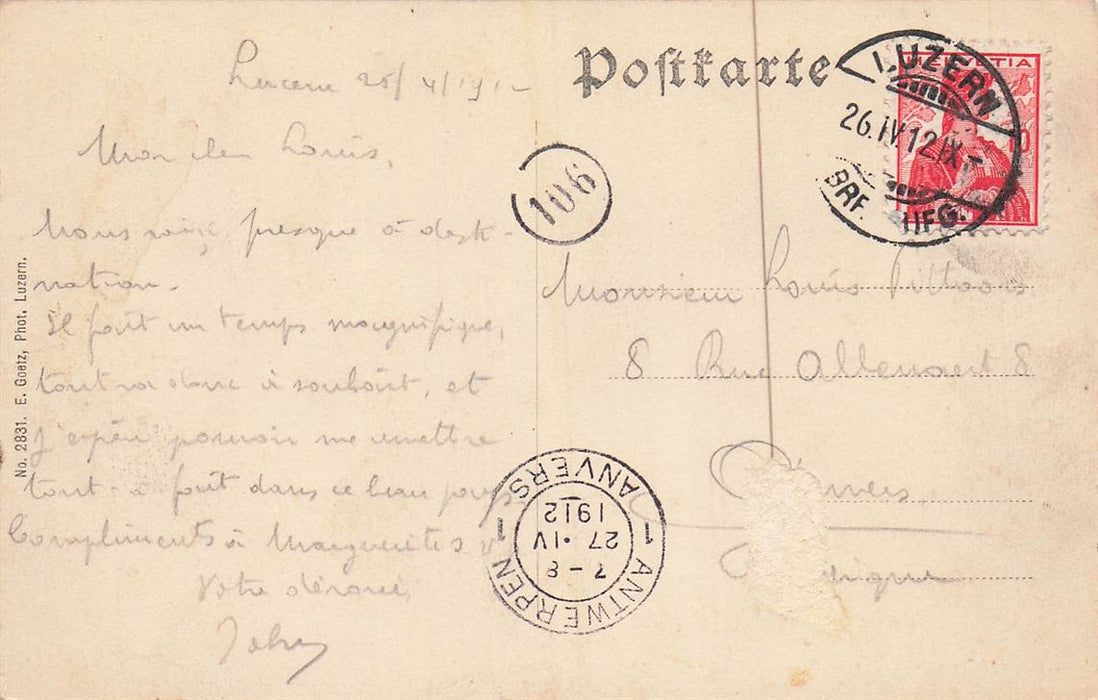 Postkarte
HELVETIA
LUZERN
26.IV.12.IX
BRF. AUFG.
106
Lucerne 25/4/191
Mon cher Louis,
Nous voici presque à desti-
nation.
Il fait un temps magnifique,
tout va donc à souhait, et
j'espère pouvoir me remettre
tout à fait dans ce beau pays
Compliments à Marguerite &
Votre dévoué,
Monsieur Louis
8 Rue 8
No. 2831. E. Goetz, Phot. Luzern.
1 ANTWERPEN 1 ANVERS
7 - 8
27 · IV
1912